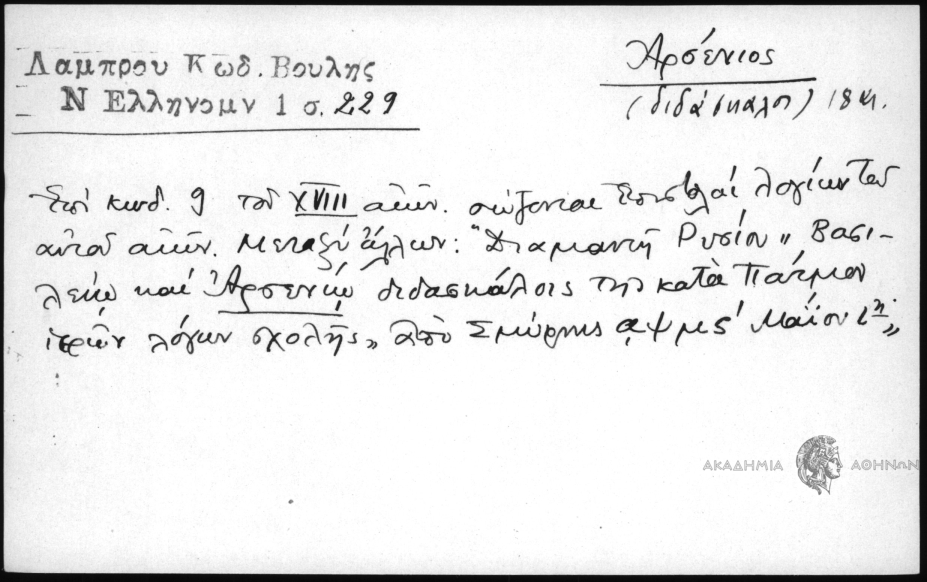 Λαμπρου Κωδ. Βουλης
Ν Ελληνομν 1 σ. 229
Ἀρσένιος
(διδάσκαλος) 18 αι.
Ἐπί κωδ. 9 τοῦ XVIII αἰῶν. σώζονται Ἐπιστολαί λογίων τοῦ
αὐτοῦ αἰῶν. μεταξύ ἄλλων: "Διαμαντῆ Ρυσίου „ Βασι-
λείῳ καί Ἀρσενίῳ διδασκάλοις τῆς κατὰ Πάτμον
ἱερῶν λόγων σχολῆς„ ἀπό Σμύρνης ͵αψμς΄ Μαΐου
ΑΚΑΔΗΜΙΑ ΑΘΗΝΩΝ